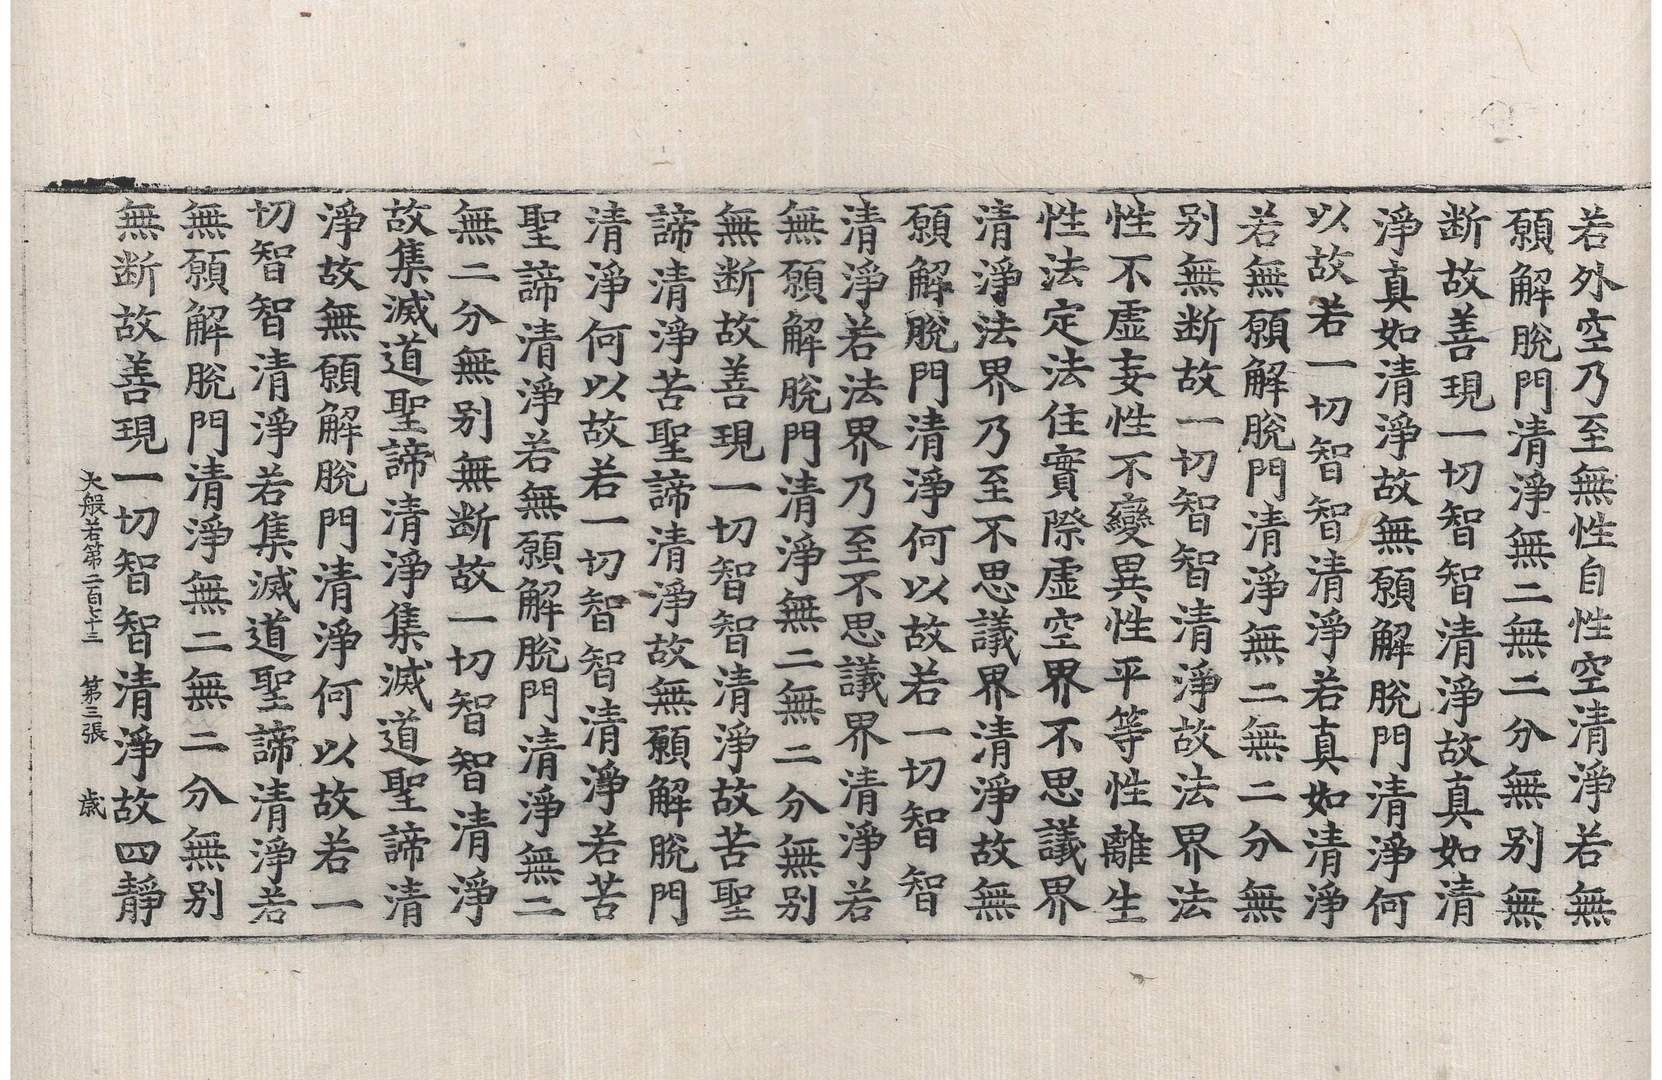 若外空乃至無性自性空清淨若無
願解脫門清淨無二無二分無别無
断故善現一切智智清淨故真如清
淨真如清淨故無願解脫門清淨何
以故若一切智智清淨若真如清淨
若無願解脫門清淨無二無二分無
别無断故一切智智清淨故法界法
性不虛妄性不變異性平等性離生
性法定法住實際虛空界不思議界
清淨法界乃至不思議界清淨故無
願解脫門清淨何以故若一切智智
清淨若法界乃至不思議界清淨若
無願解脫門清淨無二無二分無别
無断故善現一切智智清淨故苦聖
諦清淨苦聖諦清淨故無願解脫門
清淨何以故若一切智智清淨若苦
聖諦清淨若無願解脫門清淨無二
無二分無别無断故一切智智清淨
故集滅道聖諦清淨集滅道聖諦清
淨故無願解脫門清淨何以故若一
切智智清淨若集滅道聖諦清淨若
無願解脫門清淨無二無二分無别
無断故善現一切智智清淨故四靜
大般若第二百七十三 第三張 歲